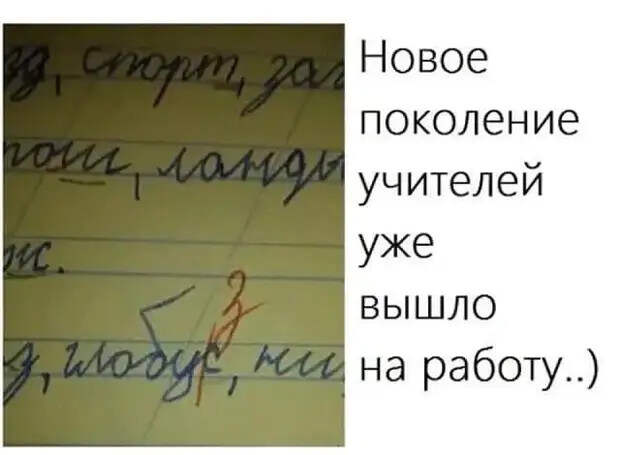 зд, спорт, заг
рош, ланды
ж.
з
з, глобус, ни
Новое
поколение
учителей
уже
вышло
на работу..)